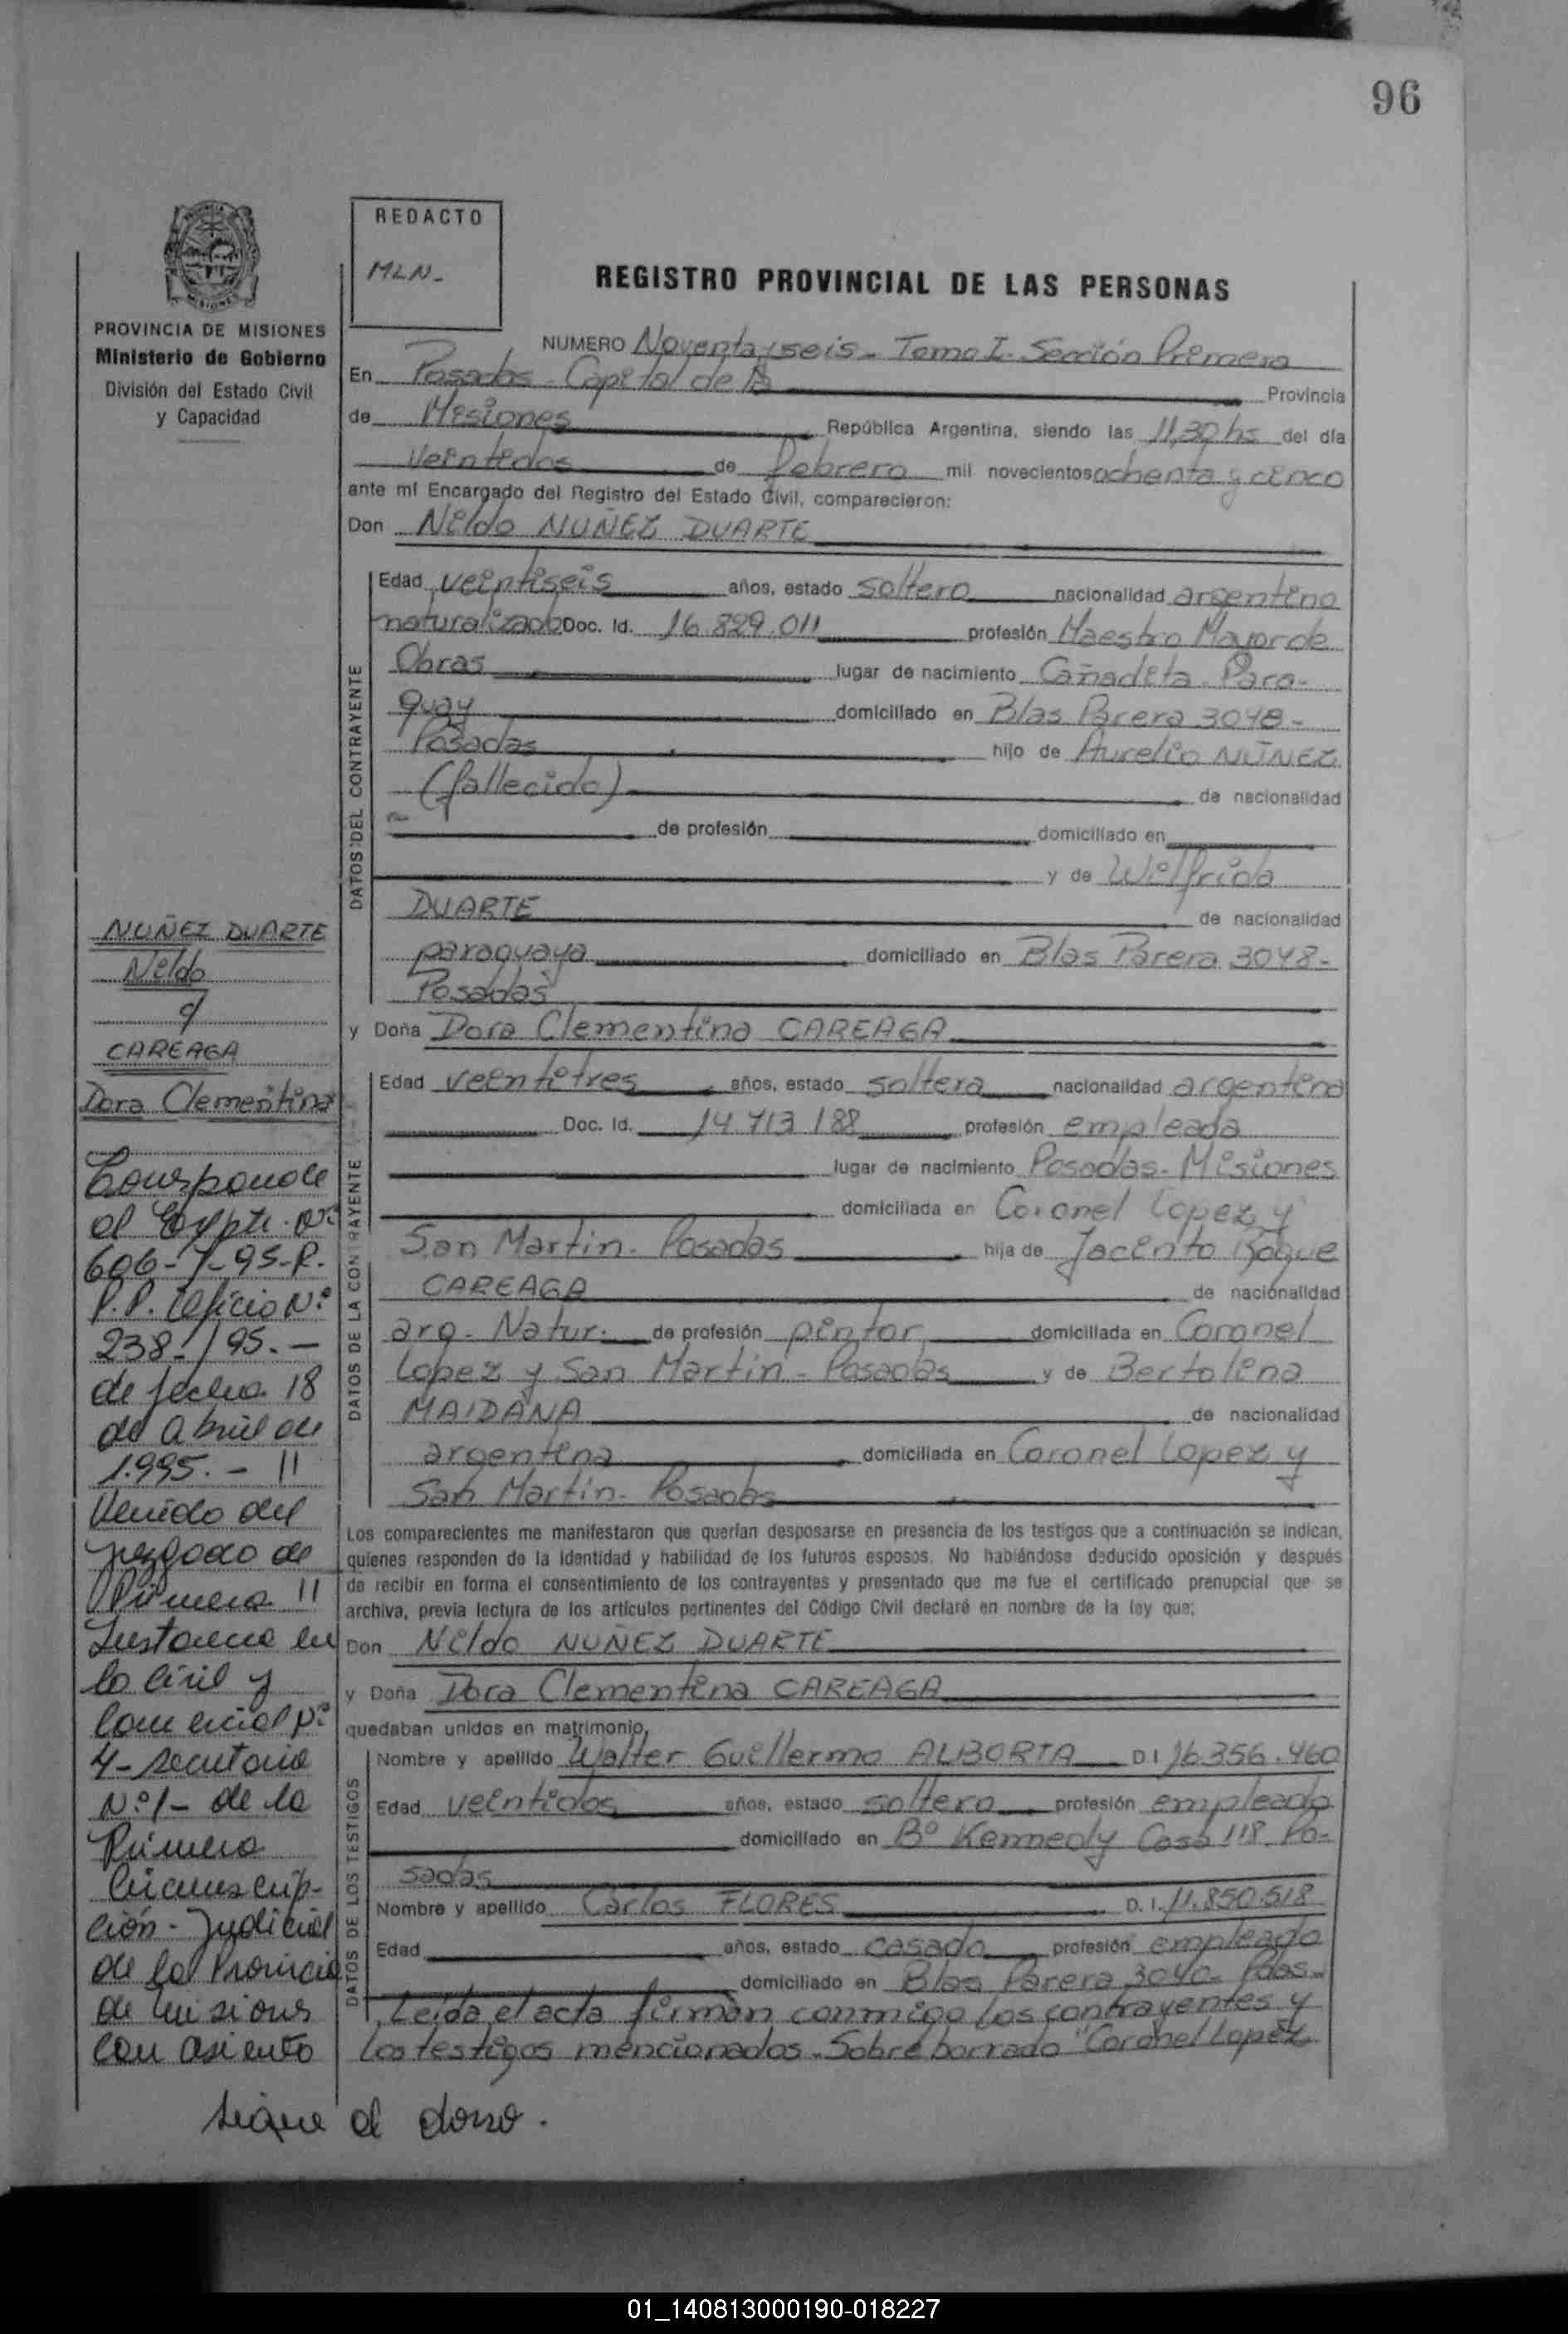 96
REDACTO
MLN-
REGISTRO PROVINCIAL DE LAS PERSONAS
PROVINCIA DE MISIONES
Ministerio de Gobierno
División del Estado Civil
y Capacidad
NUMERO Noventa y seis - Tomo I - Sección Primera
En Posadas - Capital de la Provincia
de Misiones República Argentina, siendo las 11,30 hs del día
veintidos de febrero mil novecientos ochenta y cinco
ante mí Encargado del Registro del Estado Civil, comparecieron:
Don Nildo NUÑEZ DUARTE
DATOS DEL CONTRAYENTE
Edad veintiseis años, estado soltero nacionalidad argentino
naturalizado Doc. Id. 16.829.011 profesión Maestro Mayor de
Obras lugar de nacimiento Cañadita - Para-
guay domiciliado en Blas Parera 3048 -
Posadas hijo de Aurelio NUÑEZ
(fallecido) de nacionalidad
de profesión domiciliado en
y de Wilfrida
DUARTE de nacionalidad
paraguaya domiciliado en Blas Parera 3048 -
Posadas
y Doña Dora Clementina CAREAGA
DATOS DE LA CONTRAYENTE
Edad veintitres años, estado soltera nacionalidad argentina
Doc. Id. 14.713.188 profesión empleada
lugar de nacimiento Posadas - Misiones
domiciliada en Coronel Lopez y
San Martin - Posadas hija de Jacinto Roque
CAREAGA de nacionalidad
arg. Natur. de profesión pintor domiciliada en Coronel
Lopez y San Martin - Posadas y de Bertolina
MAIDANA de nacionalidad
argentina domiciliada en Coronel Lopez y
San Martin - Posadas
Los comparecientes me manifestaron que querían desposarse en presencia de los testigos que a continuación se indican,
quienes responden de la identidad y habilidad de los futuros esposos. No habiéndose deducido oposición y después
de recibir en forma el consentimiento de los contrayentes y presentado que me fue el certificado prenupcial que se
archiva, previa lectura de los artículos pertinentes del Código Civil declaré en nombre de la ley que:
Don Nildo NUÑEZ DUARTE
y Doña Dora Clementina CAREAGA
quedaban unidos en matrimonio.
DATOS DE LOS TESTIGOS
Nombre y apellido Walter Guillermo ALBORTA D I 16.356.460
Edad veintidos años, estado soltero profesión empleado
domiciliado en Bº Kennedy Casa 118 Po-
sadas
Nombre y apellido Carlos FLORES D. I. 11.850.518
Edad años, estado casado profesión empleado
domiciliado en Blas Parera 3040 - Pdas.
Leida el acta firman conmigo los contrayentes y
los testigos mencionados - Sobre borrado "Coronel Lopez
NUÑEZ DUARTE
Nildo
c/
CAREAGA
Dora Clementina
Corresponde
al Expte. Nº
606-7-95-R.
P.P. Oficio Nº
238-/95.-
de fecha 18
de abril de
1.995.- 11
Venido del
Juzgado de
Primera 11
Instancia en
lo Civil y
Comercial Nº
4 - secretaria
Nº 1 - de la
Primera
Circunscrip-
ción - Judicial
de la Provincia
de Misiones
con asiento
sigue al dorso.
01_140813000190-018227